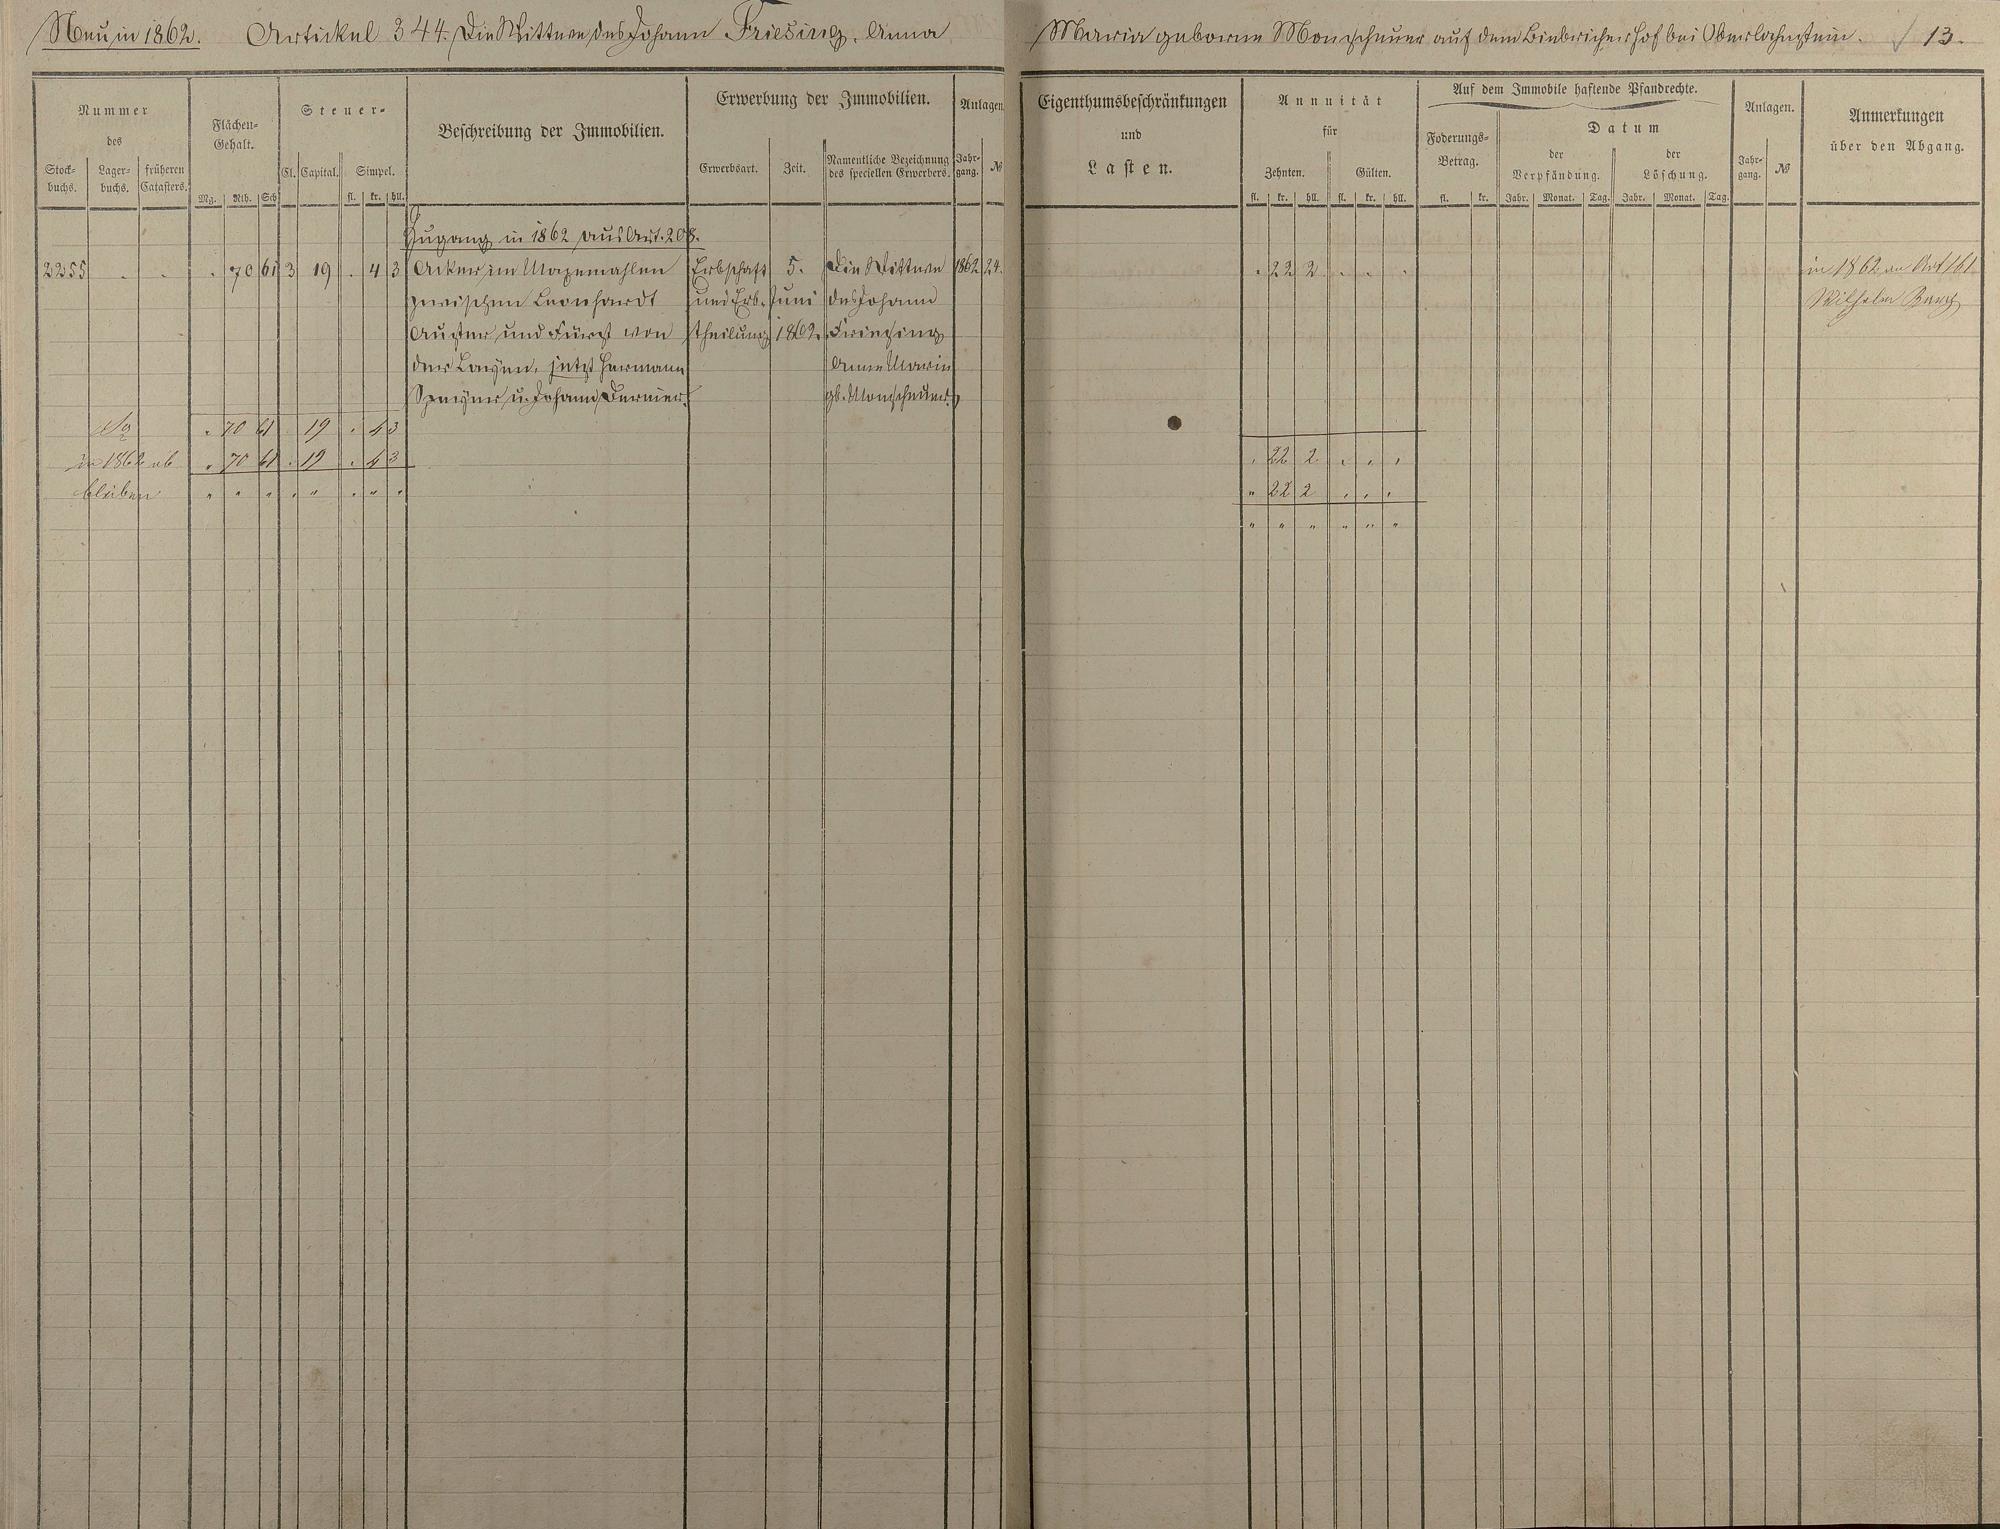 Neu in 1862. Artickel 344. Die Wittwe des Johann Friesing, Anna
Maria geborne Monscheuer auf dem Biebricher Hof bei Oberlahnstein. 13.
Nummer
des
Stock-
buchs.
Lager-
buchs.
früheren
Catasters.
Flächen-
Gehalt.
Mg. Rth. Sch
Steuer-
Cl. Capital. Simpel.
fl. kr. hll.
Beschreibung der Immobilien.
Erwerbung der Immobilien.
Erwerbsart. Zeit.
Namentliche Bezeichnung
des speciellen Erwerbers.
Anlagen
Jahr-
gang.
№
Eigenthumsbeschränkungen
und
Lasten.
Annuität
für
Zehnten. Gülten.
fl. kr. hll. fl. kr. hll.
Auf dem Immobile haftende Pfandrechte.
Foderungs-
Betrag.
fl. kr.
Datum
der
Verpfändung.
der
Löschung.
Jahr. Monat. Tag. Jahr. Monat. Tag.
Anlagen.
Jahr-
gang.
№
Anmerkungen
über den Abgang.
Zugang in 1862 aus Art. 208.
2255 . . . 70 61 3 19 . 4 3 Acker im Erbschaft 5. Die Wittwe 1862 24. . 22 2 . . . in 1862 an Art 161
zwischen Leonhardt und Erb- Juni des Johann Wilhelm
und Fürst von theilung 1862. Friesing
der Leyen, jetzt Hermann Anna Maria
u. Johann gb. Monscheuer.
Sa . 70 61 . 19 . 4 3
in 1862 ab . 70 61 . 19 . 4 3 . 22 2 . . .
bleiben " " " " " " " " " 22 2 . . .
" " " " " "